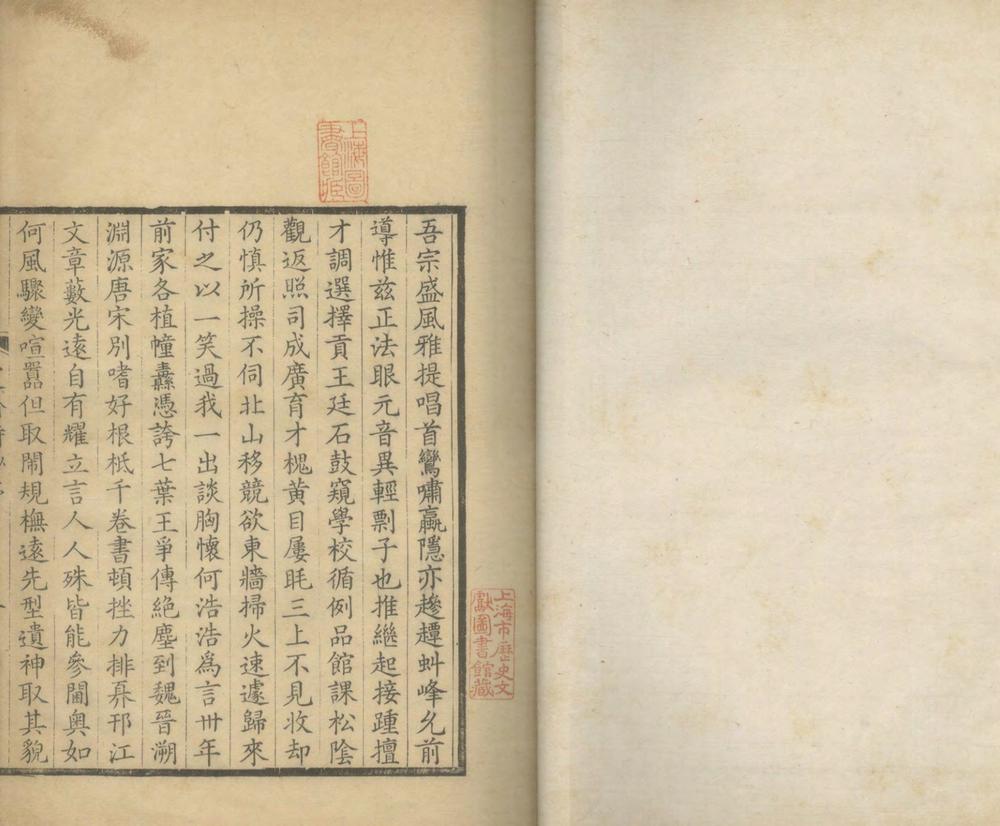 吾宗盛風雅提唱首鸞嘯嬴隱亦趁譚虯峰允前
導惟茲正法眼元音異輕剽子也推繼起接踵擅
才調選擇貢王廷石鼓窺學校循例品館課松陰
觀返照司成廣育才槐黃目屢眊三上不見收却
仍慎所操不伺北山移競欲東牆掃火速遽歸來
付之以一笑過我一出談胸懷何浩浩為言卅年
前家各植幢纛憑誇七葉王爭傳絕塵到魏晉溯
淵源唐宋別嗜好根柢千卷書頓挫力排奡邗江
文章藪光遠自有耀立言人人殊皆能參閫奧如
何風驟變喧囂但取鬧規橅遠先型遺神取其貌
上海圖書館藏
上海市歷史文獻圖書館藏